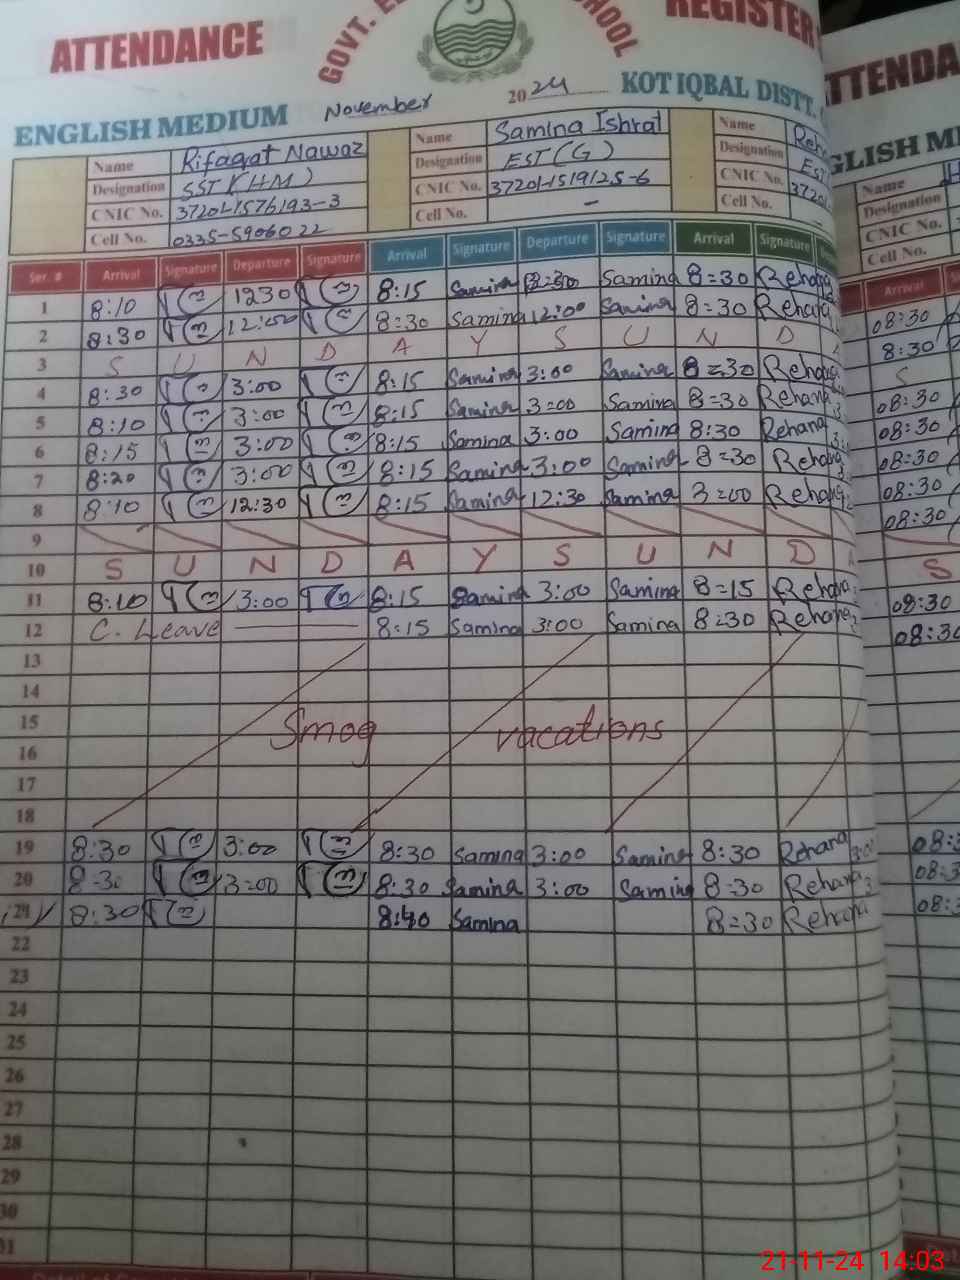 ATTENDANCE GOVT. SCHOOL REGISTER
ENGLISH MEDIUM November 2024 KOT IQBAL DISTT.
Name Rifaqat Nawaz Name Samina Ishrat Name
Designation SST (HM) Designation EST (G) Designation EST
CNIC No. 37201-1576193-3 CNIC No. 37201-1519125-6 CNIC No. 37201-
Cell No. 0335-5906022 Cell No. - Cell No.
Ser. # Arrival Signature Departure Signature Arrival Signature Departure Signature Arrival Signature
1 8:10 1230 8:15 Samina Samina 8=30 Rehana
2 8:30 12:00 8=30 Samina 12:00 Samina 8=30 Rehana
3 S U N D A Y S U N D
4 8:30 3:00 8:15 Samina 3:00 Samina 8=30 Rehana
5 8:10 3:00 8:15 Samina 3=00 Samina 8=30 Rehana
6 8:15 3:00 8:15 Samina 3:00 Samina 8:30 Rehana
7 8:20 3:00 8:15 Samina 3:00 Samina 8=30 Rehana
8 8:10 12:30 8:15 Samina 12:30 Samina 3=00 Rehana
9
10 S U N D A Y S U N D A
11 8:10 3:00 8:15 Samina 3:00 Samina 8=15 Rehana
12 C. Leave 8:15 Samina 3:00 Samina 8:30 Rehana
13
14
15 Smog vacations
16
17
18
19 8:30 3:00 8:30 Samina 3:00 Samina 8:30 Rehana
20 8=30 3=00 8:30 Samina 3:00 Samina 8=30 Rehana
21 8:30 8:40 Samina 8=30 Rehana
22
23
24
25
26
27
28
29
30
31
ATTENDA
GLISH ME
Name
Designation
CNIC No.
Cell No.
Arrival
08:30
8:30
S
08:30
08:30
08:30
08:30
08:30
S
08:30
08:30
08:3
08:3
08:3
21-11-24 14:03